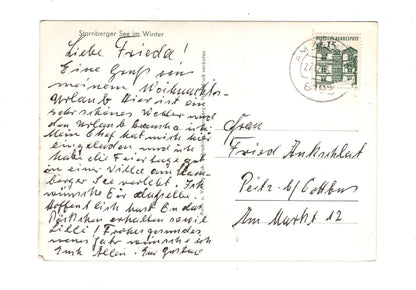 Starnberger See im Winter
Liebe Frieda!
Eine Gruß von
meinem Weihnachts-
urlaub Hier ist ein
sehr schönes Wetter und
den Urlaub brauche ich.
Mein Chef hat mich hier
eingeladen und ich
habe die Feiertage gut
in einer Villa am Starn-
berger See verlebt. Ich
wünsche Dir dasselbe.
Hoffentlich hast Du das
Päckchen erhalten sowie
Lilli! Frohes gesundes
neues Jahr wünsche ich
Euch Allen. Eur Gustav
DEUTSCHE BUNDESPOST
15
Frau
Fried
Peitz b/ Cottbus
Am Markt 12